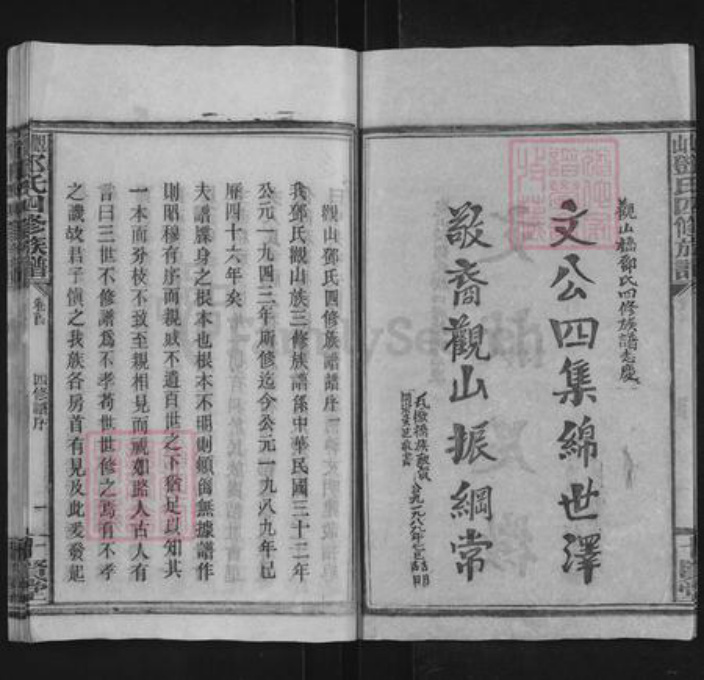 觀山橋鄧氏四修族譜志慶
文公四集綿世澤
敬裔觀山振綱常
鄧氏四修族譜
觀山鄧氏四修族譜譜序
我鄧氏觀山族三修族譜係中華民國三十二年
公元一九四三年所修迄今公元一九八九年已
歷四十六年矣
夫譜牒身之根本也根本不明則頭倒無據譜作
則昭穆有序而親戚不遺百世之下猶足以知其
一本而分枝不致至親相見而視如路人古人有
言曰三世不修譜爲不孝苟世世修之焉有不孝
之譏故君子慎之我族各房首有見及此爰發起
鄧氏四修族譜
卷首
四修譜序
一
FamilySearch